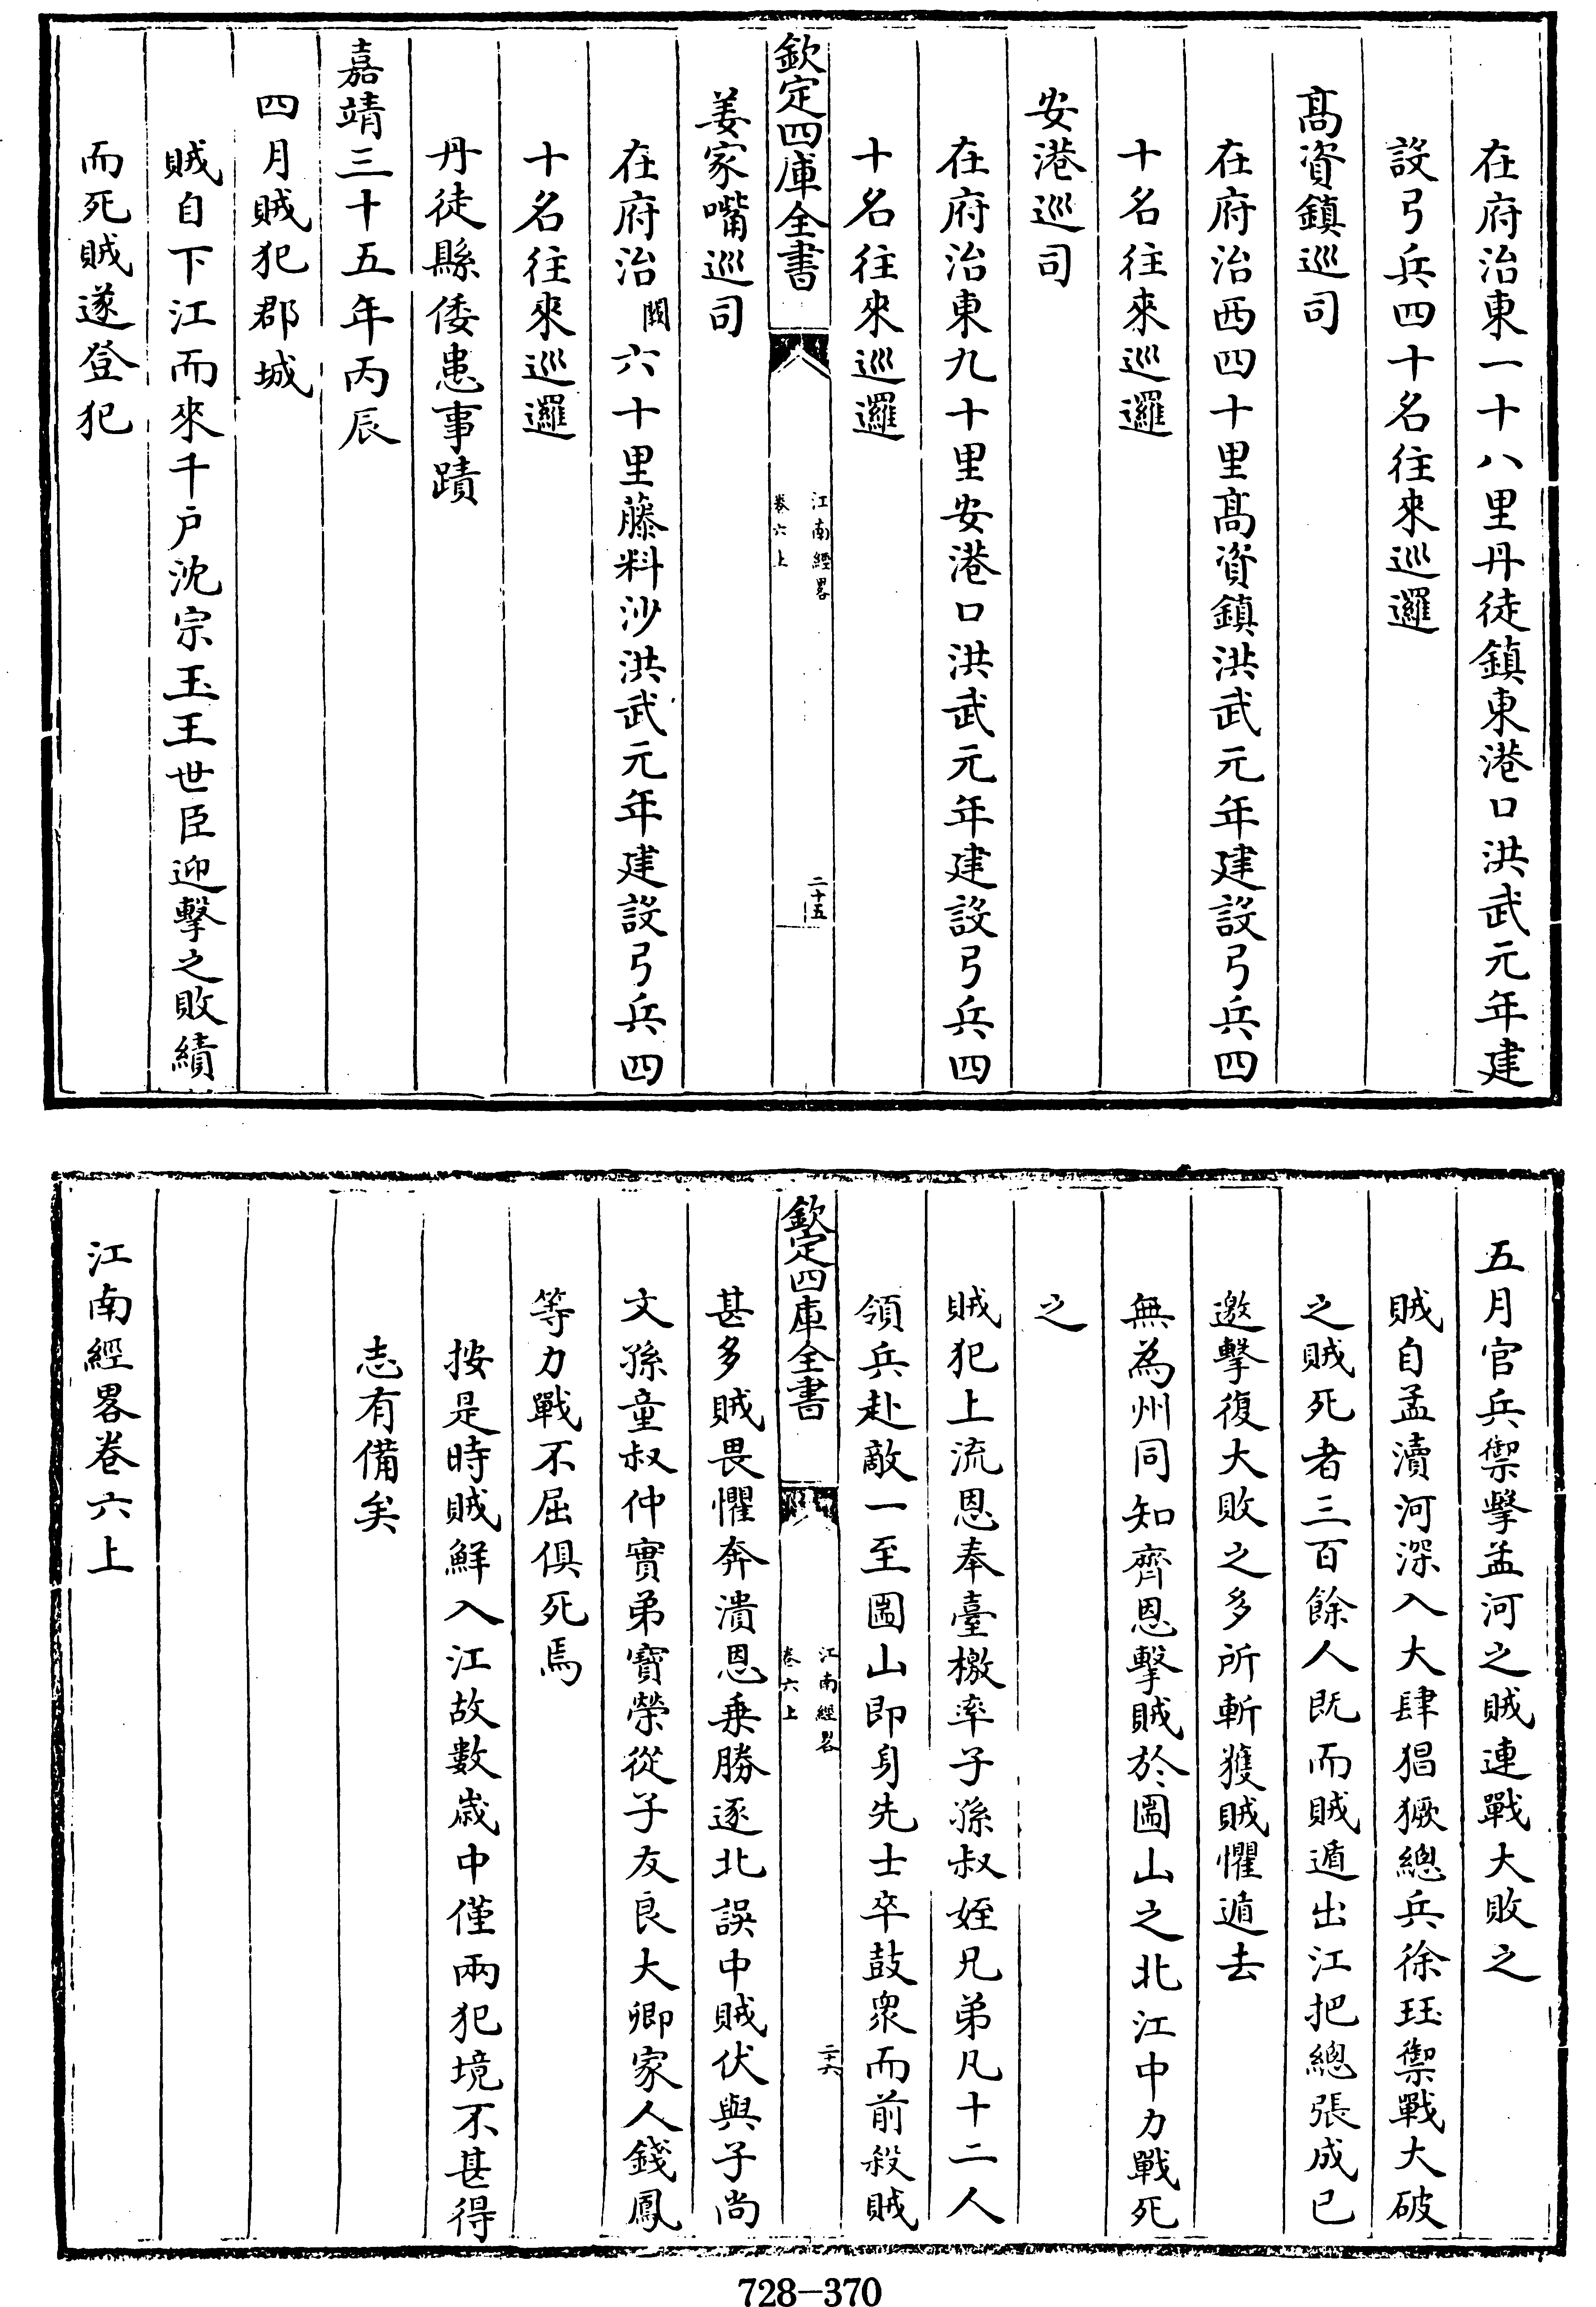 在府治東一十八里丹徒鎮東港口洪武元年建
設弓兵四十名往來巡邏
髙資鎮巡司
在府治西四十里髙資鎮洪武元年建設弓兵四
十名往來巡邏
安港巡司
在府治東九十里安港口洪武元年建設弓兵四
十名往來巡邏
欽定四庫全書
江南經畧
卷六上
二十五
姜家嘴巡司
在府治闕六十里藤料沙洪武元年建設弓兵四
十名往來巡邏
丹徒縣倭患事蹟
嘉靖三十五年丙辰
四月賊犯郡城
賊自下江而來千户沈宗玉王世臣迎擊之敗績
而死賊遂登犯
五月官兵禦擊孟河之賊連戰大敗之
賊自孟瀆河深入大肆猖獗總兵徐珏禦戰大破
之賊死者三百餘人既而賊遁出江把總張成已
邀擊復大敗之多所斬獲賊懼遁去
無為州同知齊恩擊賊於圌山之北江中力戰死
之
賊犯上流恩奉臺檄率子孫叔姪兄弟凡十二人
領兵赴敵一至圌山即身先士卒鼓衆而前殺賊
欽定四庫全書
江南經畧
卷六上
二十六
甚多賊畏懼奔潰恩乗勝逐北誤中賊伏與子尚
文孫童叔仲實弟寳榮從子友良大卿家人錢鳳
等力戰不屈俱死焉
按是時賊鮮入江故數歳中僅兩犯境不甚得
志有備矣
江南經畧卷六上
728-370